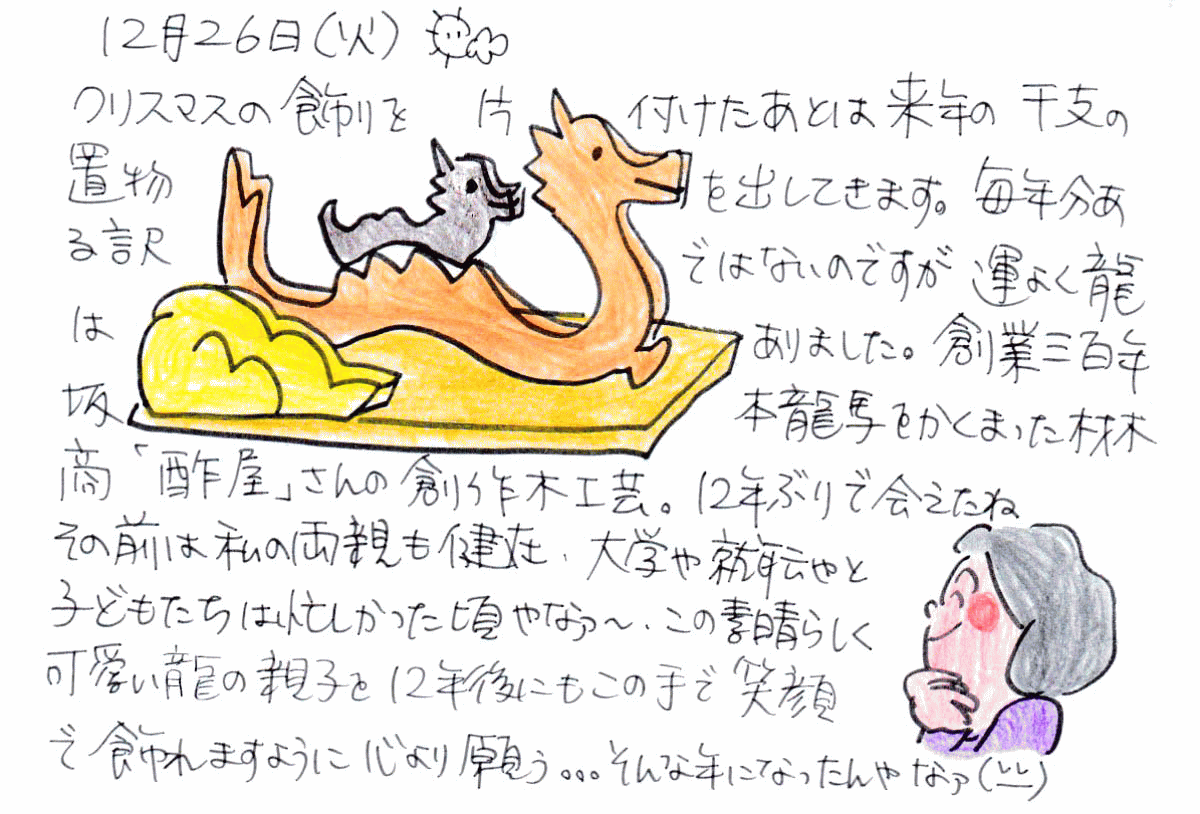 12月26日(火)
クリスマスの飾りを 片付けたあとは来年の干支の
置物を出してきます。毎年分あ
る訳ではないのですが 運よく龍
はありました。創業三百年
坂本龍馬をかくまった材木
商「酢屋」さんの創作木工芸。12年ぶりで会えたね
その前は私の両親も健在、大学や就転やと
子どもたちは忙しかった頃やなァ〜、この素晴らしく
可愛い龍の親子を12年後にもこの手で笑顔
で飾れますように心より願う...そんな年になったんやなァ(^^)